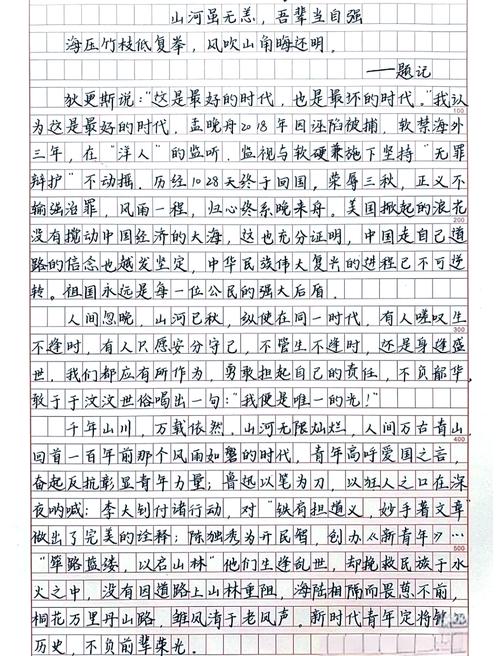 山河虽无恙，吾辈当自强
海压竹枝低复举，风吹山角晦还明。
——题记
狄更斯说："这是最好的时代，也是最坏的时代。"我认
为这是最好的时代，孟晚舟2018年因诬陷被捕，软禁海外
三年，在"洋人"的监听、监视与软硬兼施下坚持"无罪
辩护"不动摇，历经1028天终于回国，荣辱三秋，正义不
输强治罪，风雨一程，归心终系晚来舟。美国掀起的浪花
200
没有搅动中国经济的大海，这也充分证明，中国走自己道
路的信念也越发坚定，中华民族伟大复兴的进程已不可逆
转。祖国永远是每一位公民的强大后盾。
人间忽晚，山河已秋，纵使在同一时代，有人嗟叹生
300
不逢时，有人只愿安分守己，不管生不逢时，还是身逢盛
世，我们都应有所作为，勇敢担起自己的责任，不负韶华，
敢于于汶汶世俗喝出一句："我便是唯一的光！"
千年山川，万载依然。山河无限灿烂，人间万古青山，
400
回首一百年前那个风雨如磐的时代，青年高呼爱国之言，
奋起反抗彰显青年力量；鲁迅以笔为刀，以狂人之口在深
夜呐喊；李大钊付诸行动，对"铁肩担道义，妙手著文章"
做出了完美的诠释；陈独秀为开民智，创办《新青年》…
500
"筚路蓝缕，以启山林"他们生逢乱世，却挽救民族于水
火之中，没有因道路上山林重阻，海陆相隔而畏葸不前，
桐花万里丹山路，雏凤清于老凤声。新时代青年定将
历史，不负前辈荣光。